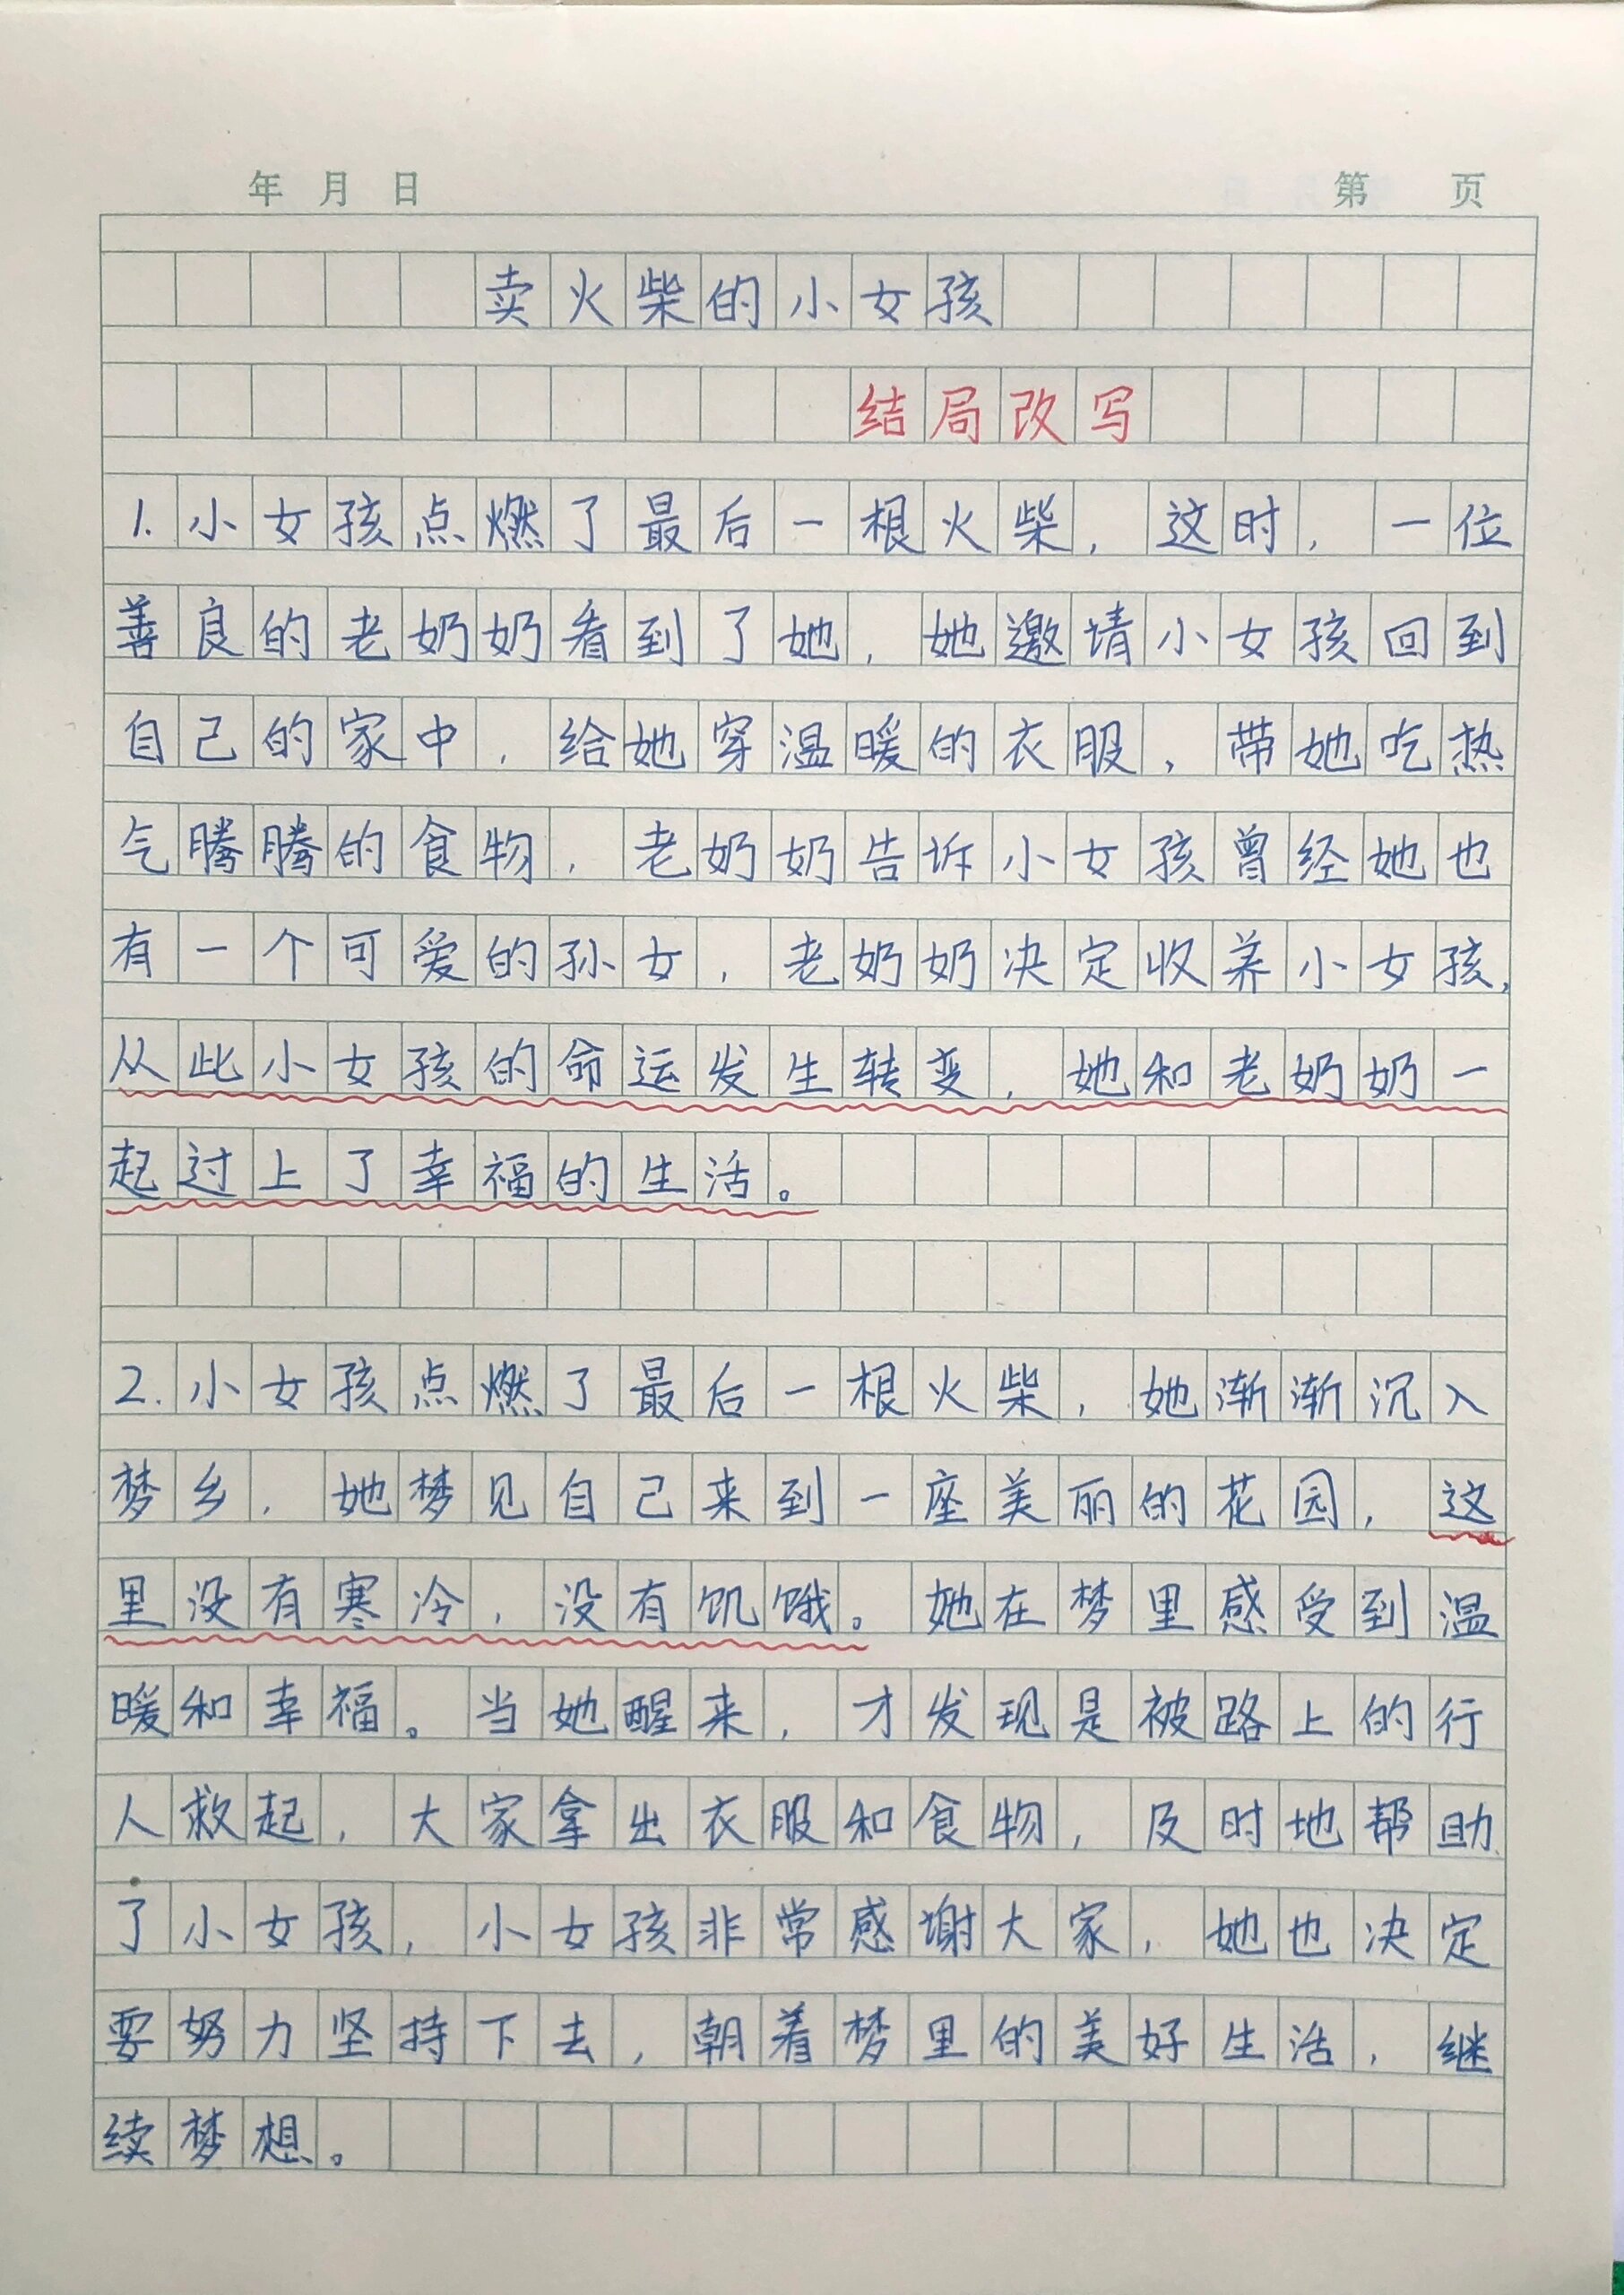 年 月 日 第 页
卖火柴的小女孩
结局改写
1.小女孩点燃了最后一根火柴，这时，一位
善良的老奶奶看到了她，她邀请小女孩回到
自己的家中，给她穿温暖的衣服，带她吃热
气腾腾的食物，老奶奶告诉小女孩曾经她也
有一个可爱的孙女，老奶奶决定收养小女孩，
从此小女孩的命运发生转变，她和老奶奶一
起过上了幸福的生活。
2.小女孩点燃了最后一根火柴，她渐渐沉入
梦乡，她梦见自己来到一座美丽的花园，这
里没有寒冷，没有饥饿。她在梦里感受到温
暖和幸福。当她醒来，才发现是被路上的行
人救起，大家拿出衣服和食物，及时地帮助
了小女孩，小女孩非常感谢大家，她也决定
要努力坚持下去，朝着梦里的美好生活，继
续梦想。